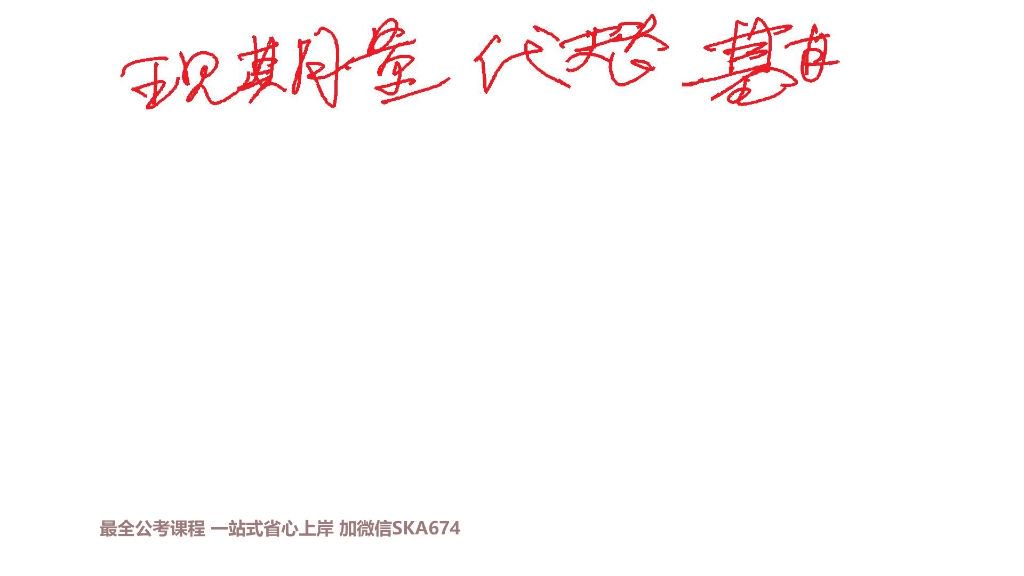 现期量 代替 基
最全公考课程 一站式省心上岸 加微信SKA674